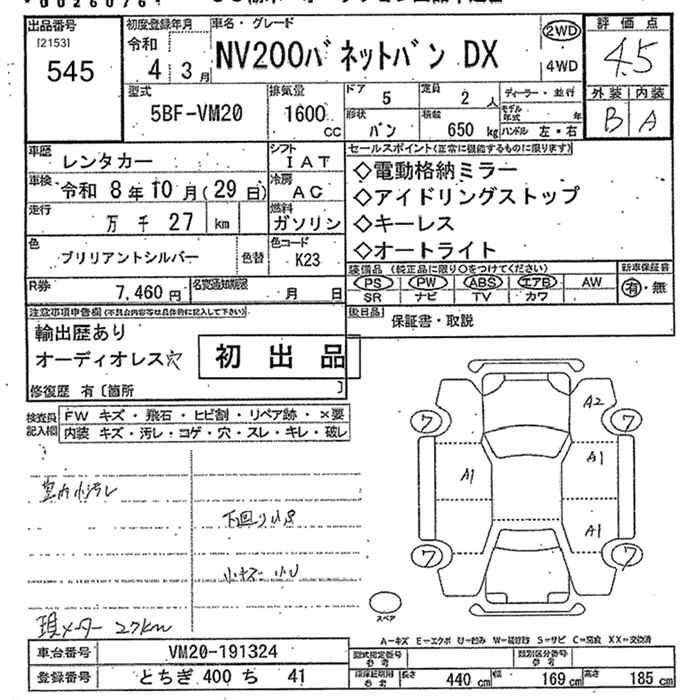 出品番号
[2153]
545
初度登録年月
令和
4 3月
車名・グレード
NV200バネットバン DX
2WD
4WD
評価点
4.5
外装 内装
B A
型式
5BF-VM20
排気量
1600 cc
ドア 5
形状 バン
定員 2 人
積載 650 kg
ディーラー・並行
モデル年式 年
ハンドル 左・右
車歴 レンタカー
シフト IAT
車検 令和 8年10月(29日)
冷房 AC
走行 万 千 27 km
燃料 ガソリン
色 ブリリアントシルバー 色替
色コード K23
R券 7,460円
名変通知期限 月 日
セールスポイント(正常に機能するものに限ります)
◇電動格納ミラー
◇アイドリングストップ
◇キーレス
◇オートライト
装備品 (純正品に限り○をつけてください)
PS PW ABS エアB AW
SR ナビ TV カワ
新車保証書
有・無
後日品 保証書・取説
注意事項申告欄(不具合内容等は具体的に記入して下さい)
輸出歴あり
オーディオレス穴
初出品
修復歴 有〔箇所 〕
検査員記入欄
FW キズ・飛石・ヒビ割・リペア跡・×要
内装 キズ・汚レ・コゲ・穴・スレ・キレ・破レ
室内小汚レ
現メーター 27km
ワ ワ
A2
A1 A1
A1
ワ ワ
スペア
A=キズ E=エクボ U=凹み W=補修跡 S=サビ C=腐食 XX=交換済
車台番号 VM20-191324
登録番号 とちぎ 400 ち 41
型式指定番号 参考
類別区分番号 参考
長さ 440 cm
幅 169 cm
高さ 185 cm